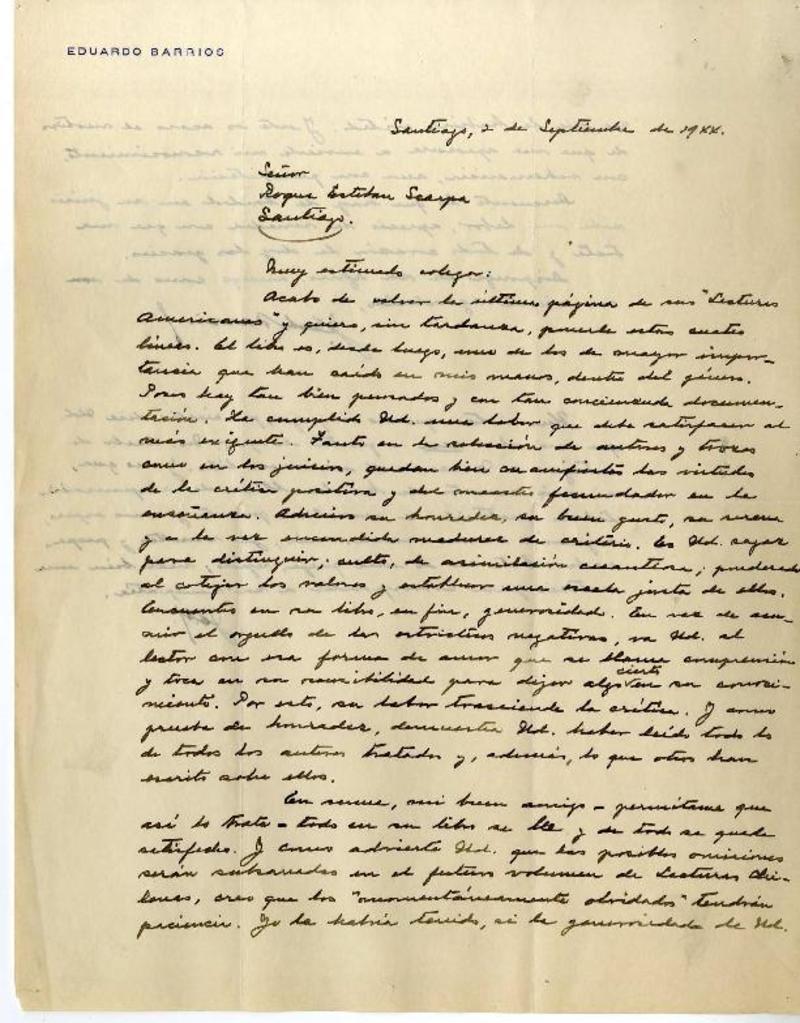 EDUARDO BARRIOS
Santiago, 2 de Septiembre de 1944.
Señor
Roque Esteban Scarpa
Santiago.
Muy estimado colega:
Acabo de volver la última página de sus "Lecturas
Americanas" y quiero, sin tardanza, ponerle estas cuatro
líneas. El libro es, desde luego, uno de los de mayor impor-
tancia que han caído en mis manos, dentro del género.
Pocos hay tan bien pensados y con tan concienzuda documen-
tación. Ha cumplido Ud. una labor que debe satisfacer al
más exigente. Tanto en la selección de autores y trozos
como en los juicios, quedan bien manifiestas las virtudes
de la crítica positiva y del maestro fecundador en la
enseñanza. Admiro su honradez, su buen gusto, su serena
y a la vez encendida madurez de criterio. Es Ud. sagaz
para distinguir; culto, de asimilación cuantiosa; ponderado
al cotejar los valores y establecer una escala justa de ellos.
Encuentro en su libro, en fin, generosidad. En vez de asu-
mir el orgullo de las estrictices negativas, va Ud. al
lector con esa forma de amor que se llama comprensión
y toca en su sensibilidad para dejar algo cierto en su conoci-
miento. Por esto, su labor trasciende la crítica. Y como
prueba de honradez, demuestra Ud. haber leído todo lo
de todos los autores tratados y, además, lo que otros han
escrito sobre ellos.
En suma, mi buen amigo – permítame que
así lo trate – todo en su libro se lee y de todo se queda
satisfecho. Y como advierte Ud. que las posibles omisiones
serán subsanadas en el futuro volumen de Lecturas Chi-
lenas, creo que los "momentáneamente olvidados" tendrán
paciencia. Yo la habría tenido, si la generosidad de Ud.